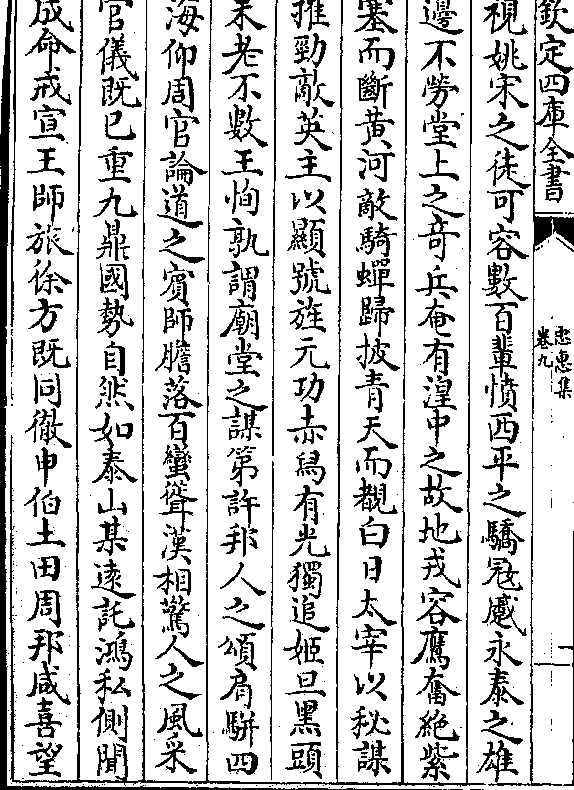 欽定四庫全書
忠惠集
卷九
視姚宋之徒可容數百輩憤西平之驕冦慼永泰之雄
邊不勞堂上之竒兵奄有湟中之故地戎容鷹奮絶紫
塞而斷黄河敵騎蟬歸披青天而覩白日太宰以秘謀
摧勁敵英主以顯號旌元功赤舄有光獨追姬旦黑頭
未老不數王恂孰謂廟堂之謀第許邦人之頌肩駢四
海仰周官論道之賓師膽落百蠻聳漢相驚人之風采
官儀既已重九鼎國勢自然如泰山某逺託鴻私側聞
成命戒宣王師旅徐方既同徹申伯土田周邦咸喜望